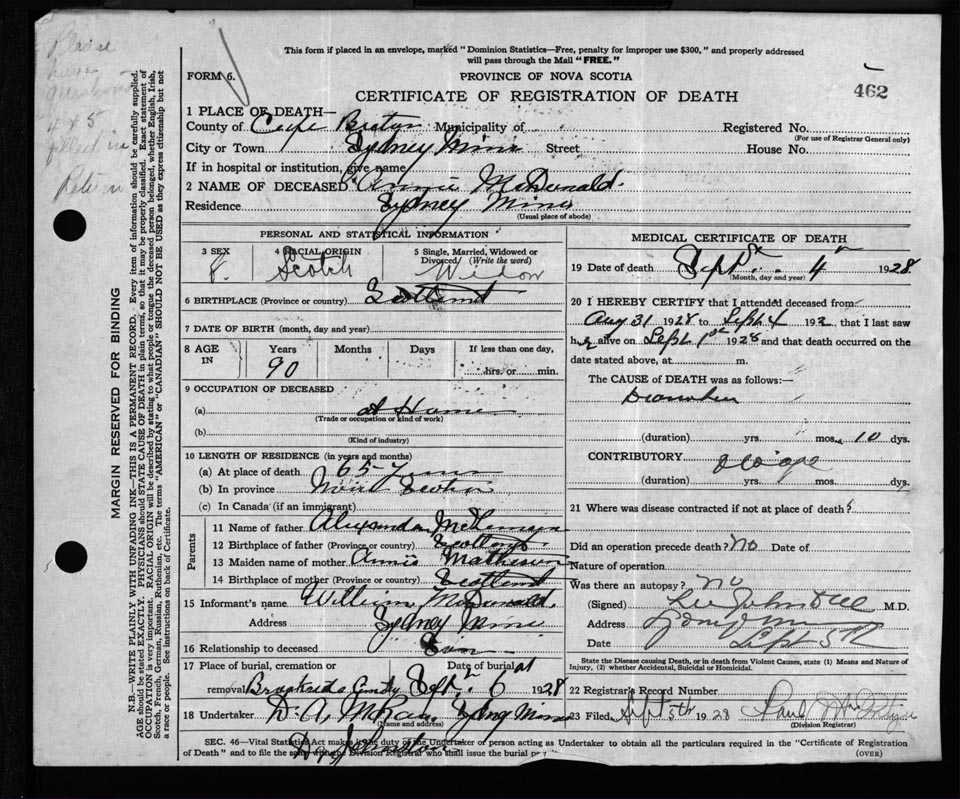 Please
have
questions
4 & 5
filled in
Return
This form if placed in an envelope, marked "Dominion Statistics—Free, penalty for improper use $300," and properly addressed
will pass through the Mail "FREE."
FORM 6.
PROVINCE OF NOVA SCOTIA
462
CERTIFICATE OF REGISTRATION OF DEATH
1 PLACE OF DEATH—
County of Cape Breton Municipality of
Registered No.
(For use of Registrar General only)
City or Town Sydney Mines Street
House No.
If in hospital or institution, give name
2 NAME OF DECEASED Annie McDonald.
Residence Sydney Mines
(Usual place of abode)
PERSONAL AND STATISTICAL INFORMATION
3 SEX F.
4 RACIAL ORIGIN Scotch
5 Single, Married, Widowed or
Divorced (Write the word)
Widow
6 BIRTHPLACE (Province or country) Scotland
7 DATE OF BIRTH (month, day and year)
8 AGE IN
Years 90
Months
Days
If less than one day,
hrs. or min.
9 OCCUPATION OF DECEASED
(a) at Home
(Trade or occupation or kind of work)
(b)
(Kind of industry)
10 LENGTH OF RESIDENCE (in years and months)
(a) At place of death 65 years
(b) In province Nova Scotia
(c) In Canada (if an immigrant)
Parents
11 Name of father Alexander
12 Birthplace of father (Province or country) Scotland
13 Maiden name of mother Annie Matheson
14 Birthplace of mother (Province or country) Scotland
15 Informant's name William McDonald.
Address Sydney Mines
16 Relationship to deceased Son
17 Place of burial, cremation or
Date of burial
removal Brookside Sept. 6 1928
18 Undertaker D. A. McRae Sydney Mines
(Name and address)
MEDICAL CERTIFICATE OF DEATH
19 Date of death Sept. 4 1928
(Month, day and year)
20 I HEREBY CERTIFY that I attended deceased from
Aug 31 1928 to Sept 4 192 , that I last saw
her alive on Sept 1st 1928 and that death occurred on the
date stated above, at m.
The CAUSE of DEATH was as follows:—
Diarrhoea
(duration) yrs. mos. 10 dys.
CONTRIBUTORY old age
(duration) yrs. mos. dys.
21 Where was disease contracted if not at place of death?
Did an operation precede death? No Date of
Nature of operation
Was there an autopsy? no
(Signed) M.D.
Address
Date Sept 5th
State the Disease causing Death, or in death from Violent Causes, state (1) Means and Nature of
Injury, (2) whether Accidental, Suicidal or Homicidal.
22 Registrar's Record Number
23 Filed Sept 5th 1928 Paul
(Division Registrar)
SEC. 46—Vital Statistics Act makes it the duty of the Undertaker or person acting as Undertaker to obtain all the particulars required in the "Certificate of Registration
of Death" and to file the same with the Division Registrar who shall issue the burial
(OVER)
MARGIN RESERVED FOR BINDING
N.B.—WRITE PLAINLY WITH UNFADING INK—THIS IS A PERMANENT RECORD. Every item of information should be carefully supplied.
AGE should be stated EXACTLY. PHYSICIANS should STATE CAUSE OF DEATH in plain terms, so that it may be properly classified. Exact statement of
OCCUPATION is very important. RACIAL ORIGIN will be described by stating to what people or tongue the deceased person belonged, whether English, Irish,
Scotch, French, German, Russian, Ruthenian, etc. The terms "AMERICAN" or "CANADIAN" SHOULD NOT BE USED as they express citizenship but not
a race or people. See instructions on back of Certificate.